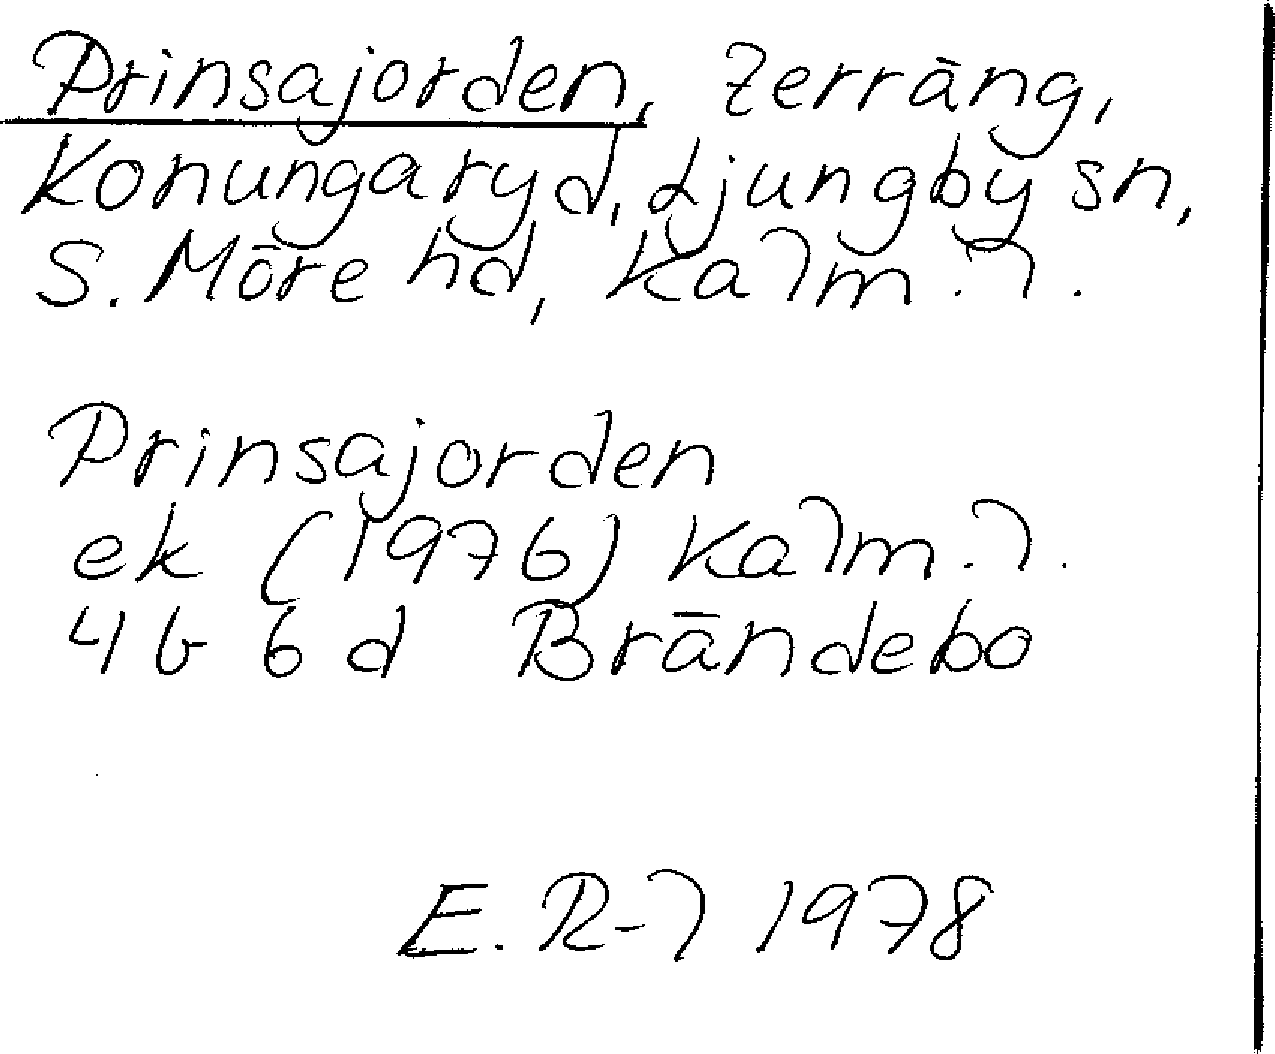 Prinsajorden, terräng,
Konungaryd, Ljungby sn,
S. Möre hd, Kalm. l.
Prinsajorden
ek (1976) Kalm. l.
4 G 6 d Brändebo
E. R-l 1978